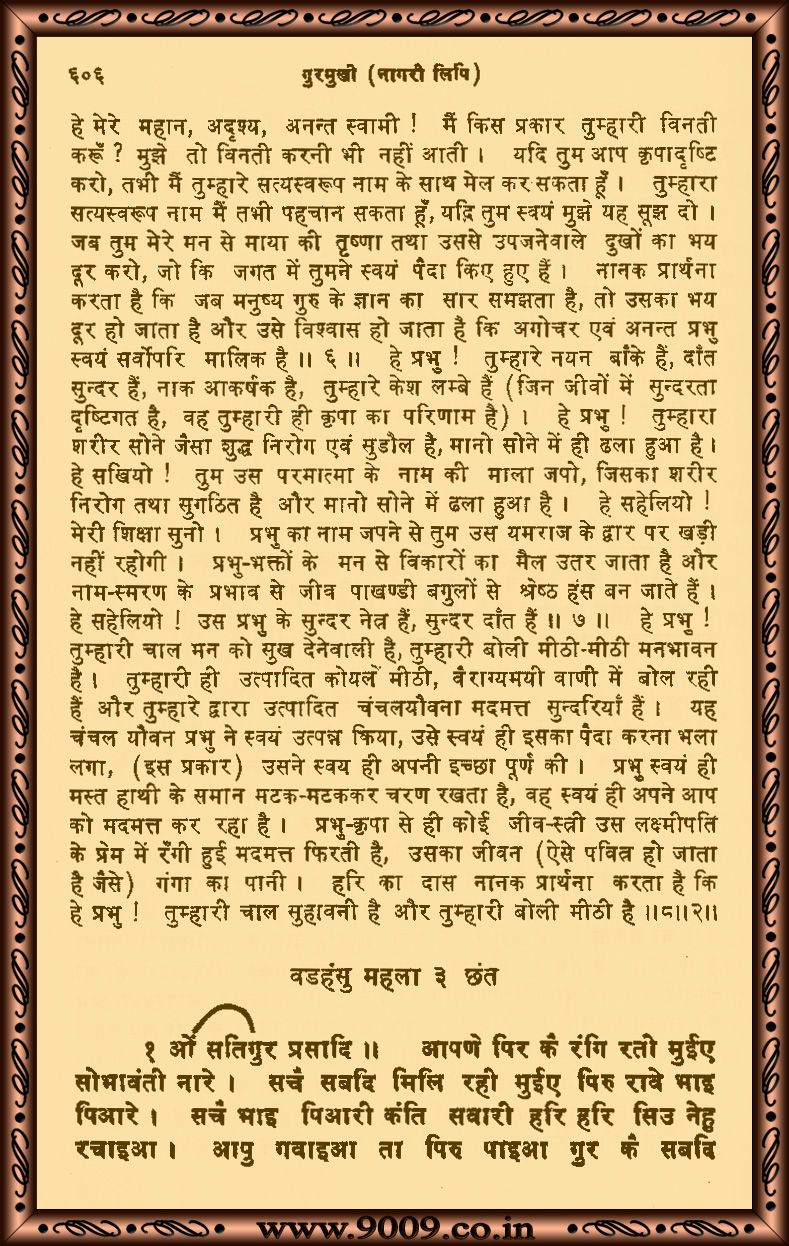 ६०६ गुरमुखी (नागरी लिपि)
हे मेरे महान, अदृश्य, अनन्त स्वामी ! मैं किस प्रकार तुम्हारी विनती
करूँ ? मुझे तो विनती करनी भी नहीं आती । यदि तुम आप कृपादृष्टि
करो, तभी मैं तुम्हारे सत्यस्वरूप नाम के साथ मेल कर सकता हूँ । तुम्हारा
सत्यस्वरूप नाम मैं तभी पहचान सकता हूँ, यदि तुम स्वयं मुझे यह सूझ दो ।
जब तुम मेरे मन से माया की तृष्णा तथा उससे उपजनेवाले दुखों का भय
दूर करो, जो कि जगत में तुमने स्वयं पैदा किए हुए हैं । नानक प्रार्थना
करता है कि जब मनुष्य गुरु के ज्ञान का सार समझता है, तो उसका भय
दूर हो जाता है और उसे विश्वास हो जाता है कि अगोचर एवं अनन्त प्रभु
स्वयं सर्वोपरि मालिक है ॥ ६ ॥ हे प्रभु ! तुम्हारे नयन बाँके हैं, दाँत
सुन्दर हैं, नाक आकर्षक है, तुम्हारे केश लम्बे हैं (जिन जीवों में सुन्दरता
दृष्टिगत है, वह तुम्हारी ही कृपा का परिणाम है) । हे प्रभु ! तुम्हारा
शरीर सोने जैसा शुद्ध निरोग एवं सुडौल है, मानो सोने में ही ढला हुआ है ।
हे सखियो ! तुम उस परमात्मा के नाम की माला जपो, जिसका शरीर
निरोग तथा सुगठित है और मानो सोने में ढला हुआ है । हे सहेलियो !
मेरी शिक्षा सुनो । प्रभु का नाम जपने से तुम उस यमराज के द्वार पर खड़ी
नहीं रहोगी । प्रभु-भक्तों के मन से विकारों का मैल उतर जाता है और
नाम-स्मरण के प्रभाव से जीव पाखण्डी बगुलों से श्रेष्ठ हंस बन जाते हैं ।
हे सहेलियो ! उस प्रभु के सुन्दर नेत्र हैं, सुन्दर दाँत हैं ॥ ७ ॥ हे प्रभु !
तुम्हारी चाल मन को सुख देनेवाली है, तुम्हारी बोली मीठी-मीठी मनभावन
है । तुम्हारी ही उत्पादित कोयलें मीठी, वैराग्यमयी वाणी में बोल रही
हैं और तुम्हारे द्वारा उत्पादित चंचलयौवना मदमत्त सुन्दरियाँ हैं । यह
चंचल यौवन प्रभु ने स्वयं उत्पन्न किया, उसे स्वयं ही इसका पैदा करना भला
लगा, (इस प्रकार) उसने स्वय ही अपनी इच्छा पूर्ण की । प्रभु स्वयं ही
मस्त हाथी के समान मटक-मटककर चरण रखता है, वह स्वयं ही अपने आप
को मदमत्त कर रहा है । प्रभु-कृपा से ही कोई जीव-स्त्री उस लक्ष्मीपति
के प्रेम में रँगी हुई मदमत्त फिरती है, उसका जीवन (ऐसे पवित्र हो जाता
है जैसे) गंगा का पानी । हरि का दास नानक प्रार्थना करता है कि
हे प्रभु ! तुम्हारी चाल सुहावनी है और तुम्हारी बोली मीठी है ॥८॥२॥
वडहंसु महला ३ छंत
१ ओं सतिगुर प्रसादि ॥ आपणे पिर कै रंगि रती मुईए
सोभावंती नारे । सचै सबदि मिलि रही मुईए पिरु रावे भाइ
पिआरे । सचै भाइ पिआरी कंति सवारी हरि हरि सिउ नेहु
रचाइआ । आपु गवाइआ ता पिरु पाइआ गुर कै सबदि
www.9009.co.in